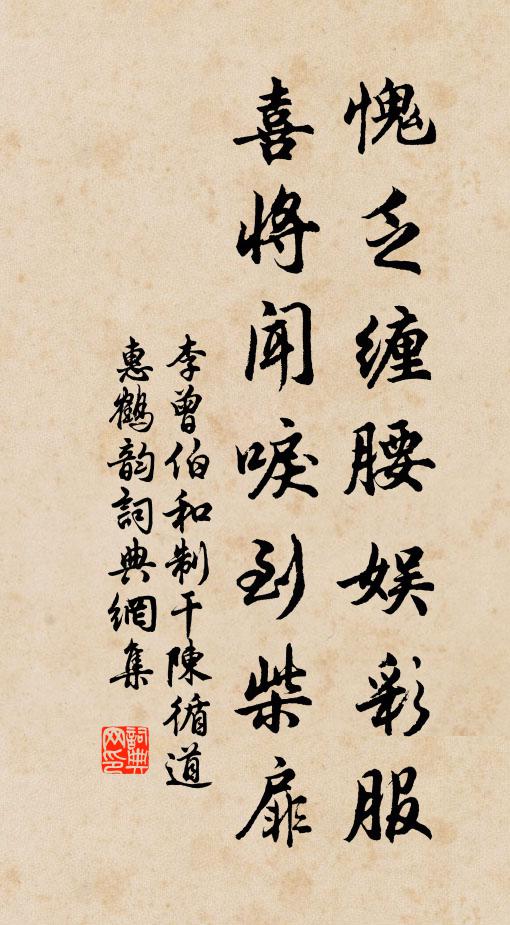 愧乏缠腰娱彩服
喜将闻唳到柴扉
李曾伯和制干陳循道
惠鶴韵詞典網集
詞典
网印